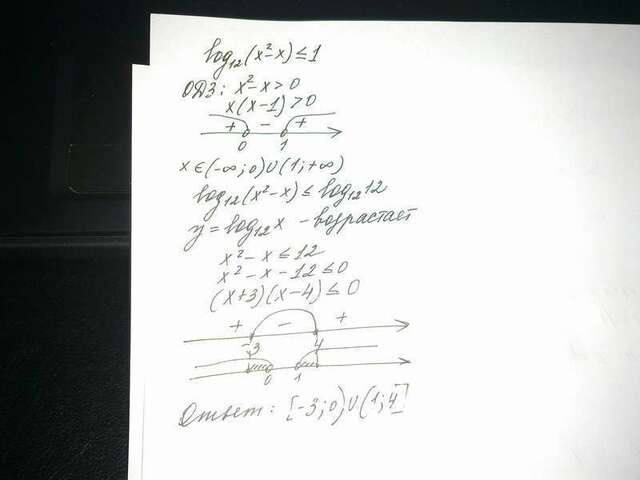 log₁₂(x²-x)≤1
ОДЗ: x²-x>0
x(x-1)>0
+ - +
0 1
x∈(-∞;0)∪(1;+∞)
log₁₂(x²-x)≤log₁₂12
y=log₁₂x - возрастает
x²-x≤12
x²-x-12≤0
(x+3)(x-4)≤0
+ - +
-3 4
0 1
Ответ: [-3;0)∪(1;4]